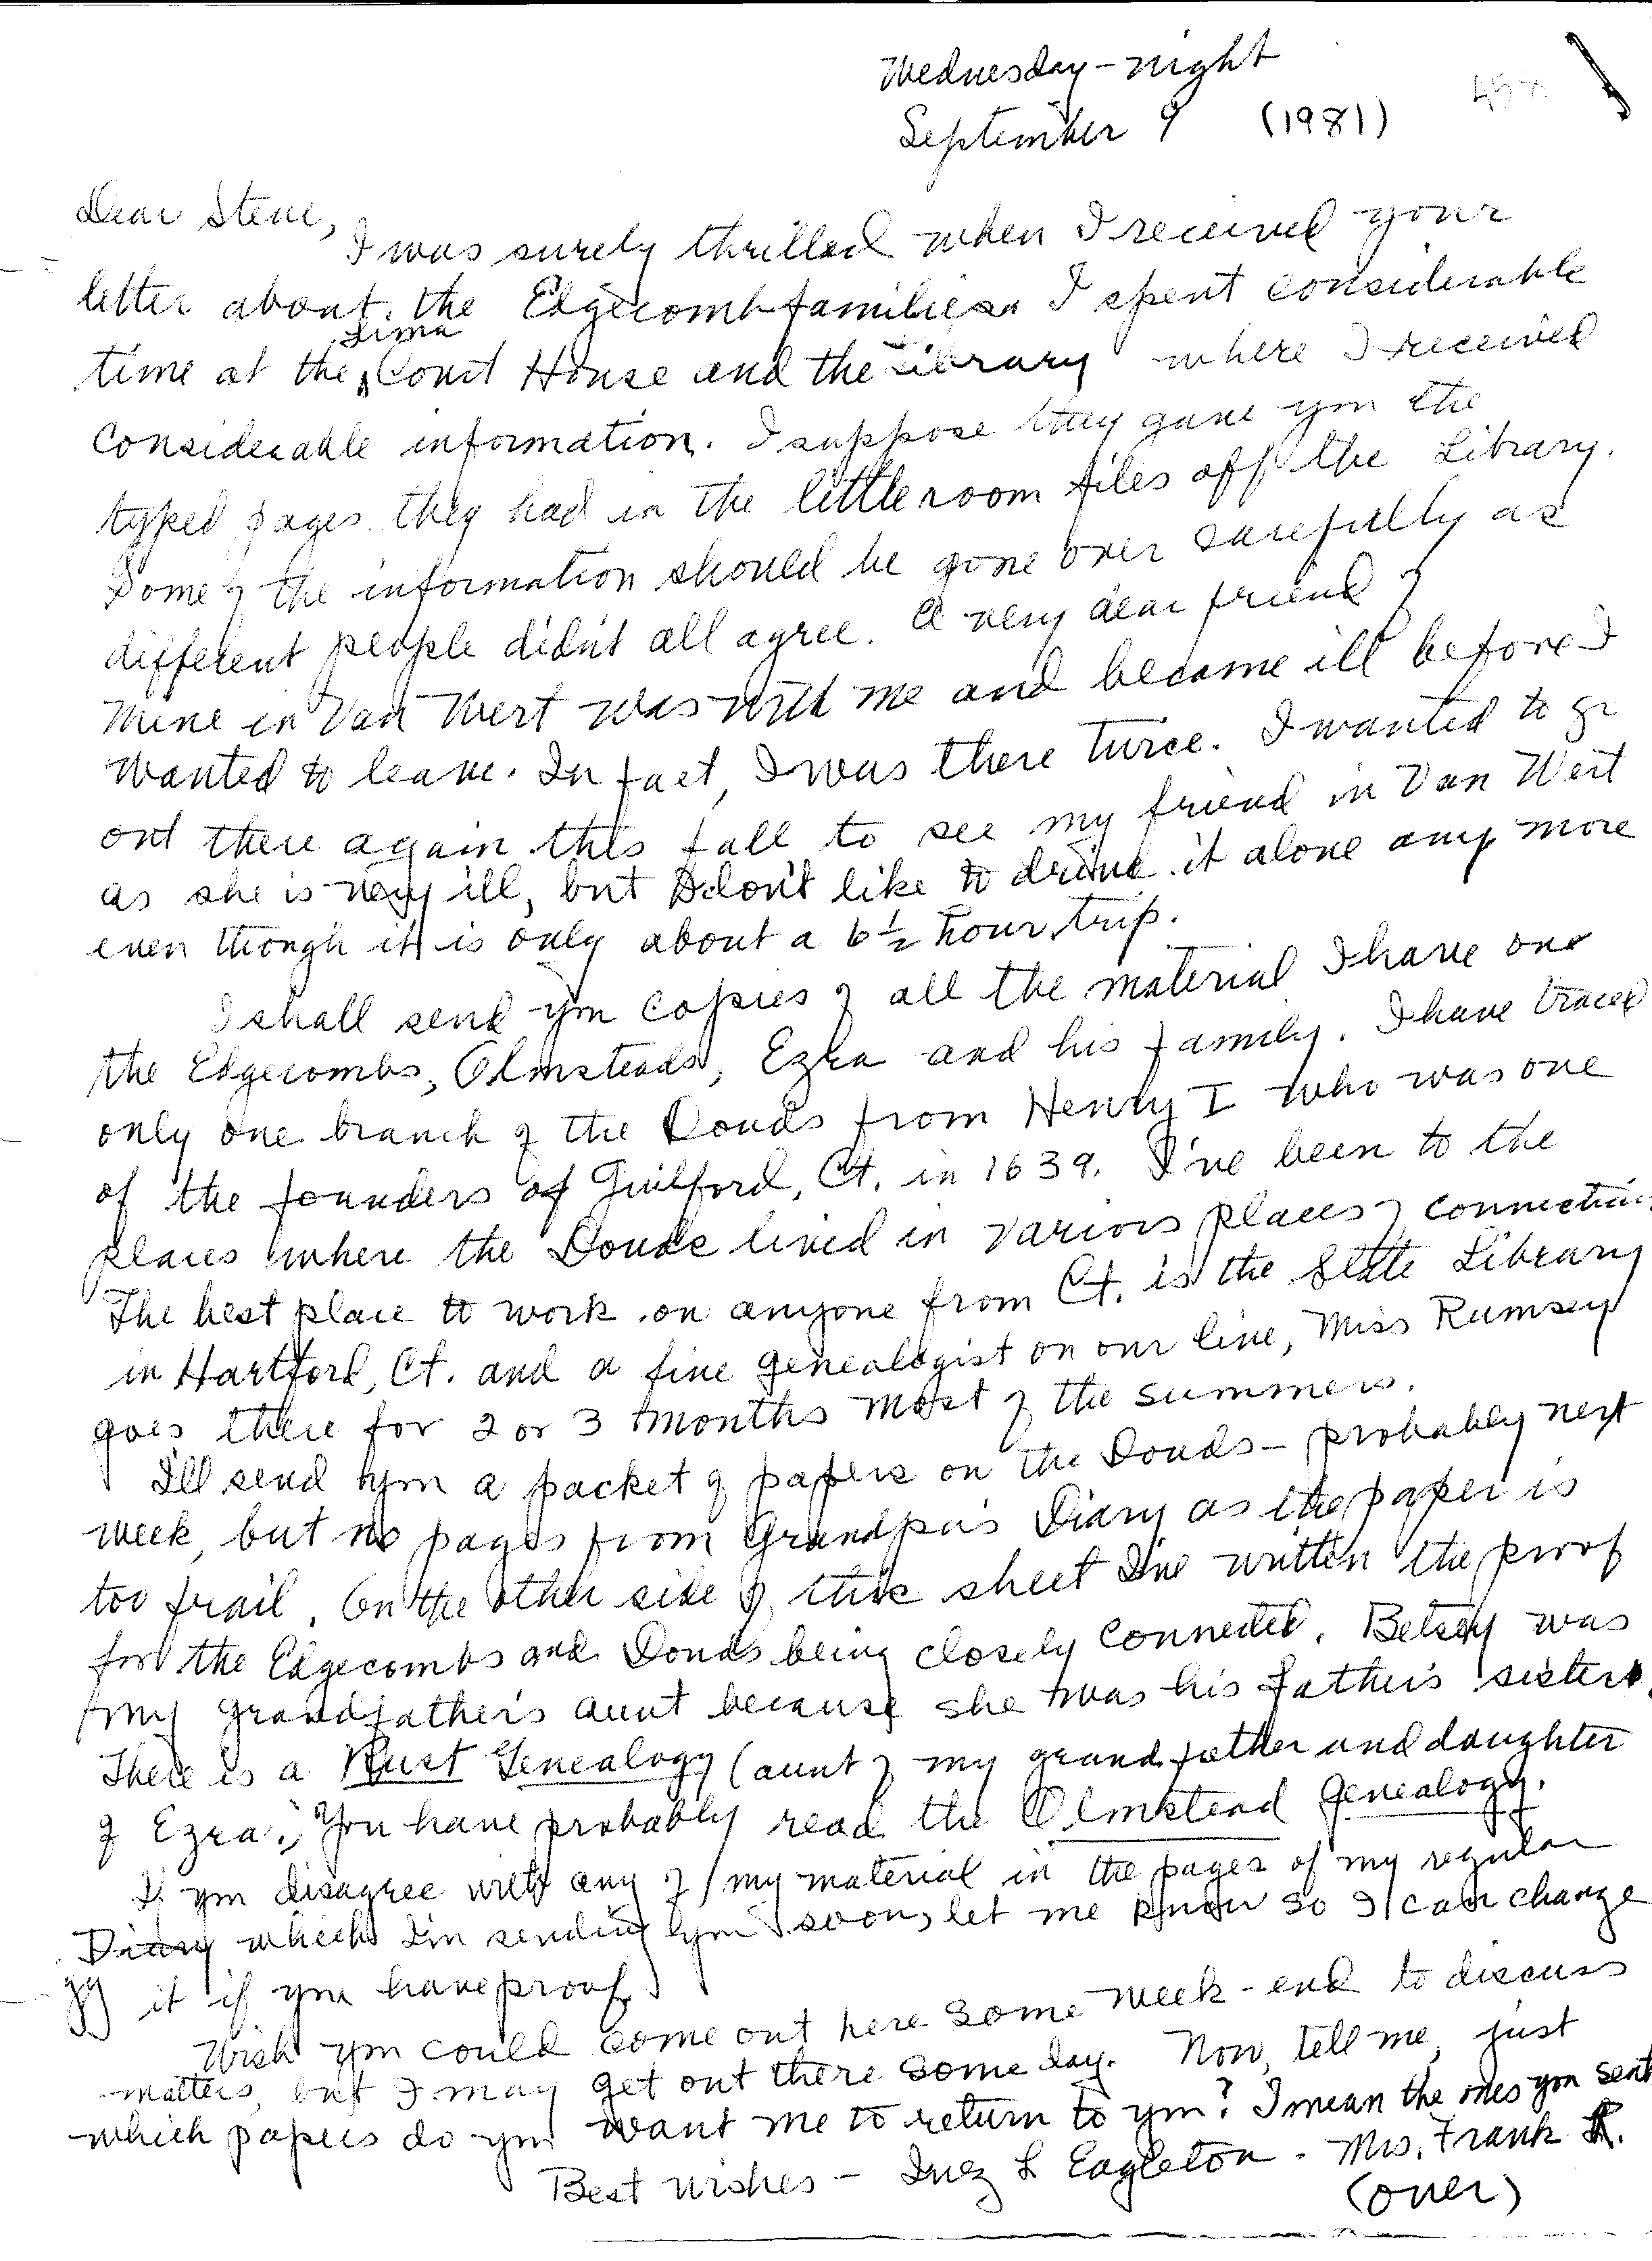 Wednesday-night
September 9 (1981)
458
Dear Steve,
I was surely thrilled when I received your
letter about the Edgecomb families. I spent considerable
Lima
time at the Court House and the Library where I received
considerable information. I suppose they gave you the
typed pages they had in the little room files off the Library.
Some of the information should be gone over carefully as
different people didn't all agree. A very dear friend of
mine in Van Wert was with me and became ill before I
wanted to leave. In fact, I was there twice. I wanted to go
out there again this fall to see my friend in Van Wert
as she is very ill, but I don't like to drive it alone any more
even though it is only about a 6½ hour trip.
I shall send you copies of all the material I have on
the Edgecombs, Olmsteads, Ezra and his family. I have traced
only one branch of the Douds from Henry I who was one
of the founders of Guilford, Ct. in 1639. I've been to the
places where the Douds lived in various places of Connecticut
The best place to work on anyone from Ct. is the State Library
in Hartford, Ct. and a fine genealogist on our line, Miss Rumsey
goes there for 2 or 3 months most of the summers.
I'll send you a packet of papers on the Douds - probably next
week, but no pages from Grandpa's Diary as the paper is
too frail. On the other side of this sheet I've written the proof
for the Edgecombs and Douds being closely connected. Betsey was
my grandfather's aunt because she was his father's sister.
There is a Rust Genealogy (aunt of my grandfather and daughter
of Ezra.) You have probably read the Olmstead Genealogy.
If you disagree with any of my material in the pages of my regular
Diary which I'm sending you soon, let me know so I can change
it if you have proof.
Wish you could come out here some week-end to discuss
matters, but I may get out there some day. Now, tell me, just
which papers do you want me to return to you? I mean the ones you sent
Best wishes - Inez L Eagleton - Mrs. Frank R.
(over)